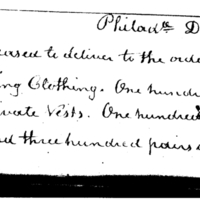 Philadª D
eased to deliver to the orde
ing Clothing. One hundr
ivate Vests. One hundred
nd three hundred pairs